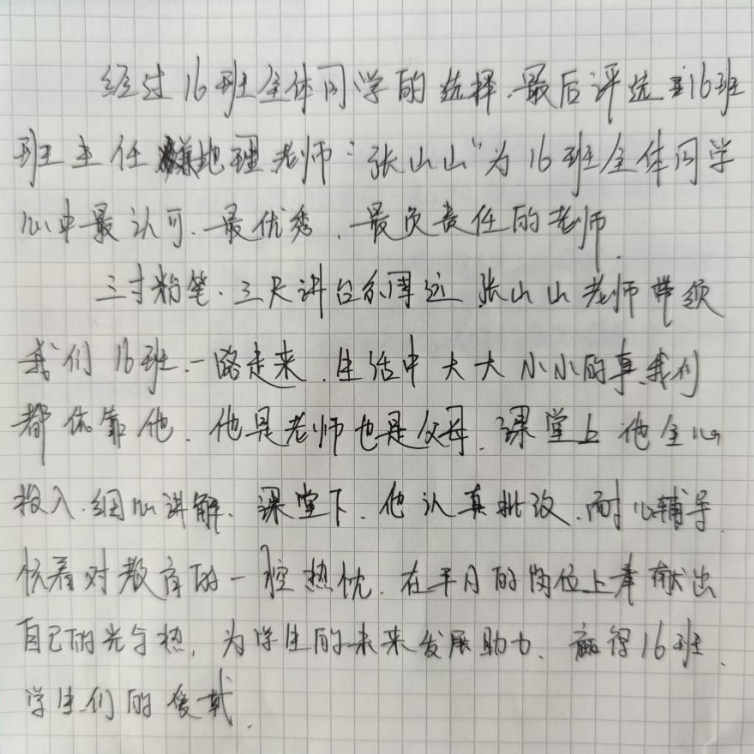 经过16班全体同学的选择.最后评选出16班
班主任兼地理老师“张山山”为16班全体同学
心中最认可.最优秀.最负责任的老师.
三寸粉笔.三尺讲台系国运 张山山老师带领
我们16班.一路走来.生活中大大小小的事.我们
都依靠他.他是老师也是父母.课堂上他全心
投入.细心讲解.课堂下.他认真批改.耐心辅导.
怀着对教育的一腔热忱.在平凡的岗位上奉献出
自己的光与热,为学生的未来发展助力、赢得16班.
学生们的爱戴.